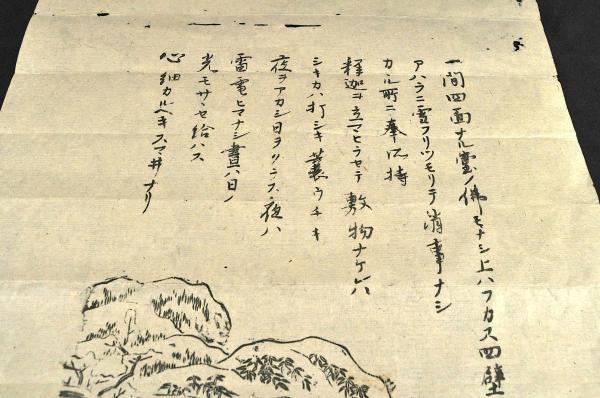 一間四面ナル堂ノ佛モナシ上ハフカス四壁
アハラニ雪フリツモリテ消事ナシ
カル所ニ奉所持
釋迦ヲ立マヒラセテ敷物ナケレハ
シキカハ打シキ蓑ウチキ
夜ヲアカシ日ヲクラス夜ハ
雷電ヒマナシ晝ハ日ノ
光モサヽセ給ハス
心細カルヘキスマ井ナリ